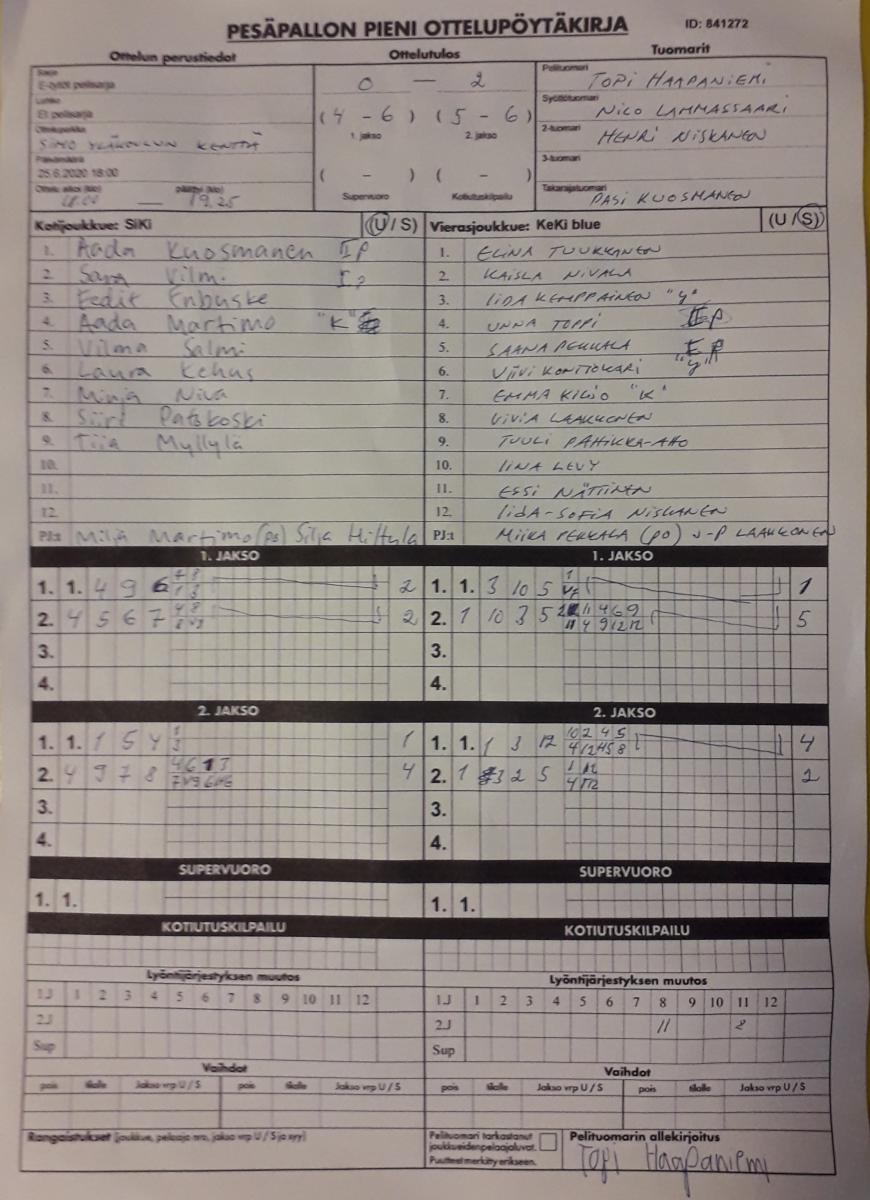 PESÄPALLON PIENI OTTELUPÖYTÄKIRJA
ID: 841272
Ottelun perustiedot
Sarja
E-tytöt pelisarja
Lohko
E1 pelisarja
Ottelupaikka
SIMO YLÄKOULUN KENTTÄ
Päivämäärä
25.6.2020 18:00
Ottelu alkoi (klo) päättyi (klo)
18.00 — 19.25
Ottelutulos
0 — 2
(4 - 6) (5 - 6)
1. jakso 2. jakso
( - ) ( - )
Supervuoro Kotiutuskilpailu
Tuomarit
Pelituomari
TOPI HAAPANIEMI
Syöttötuomari
NICO LAMMASSAARI
2-tuomari
HENRI NISKANEN
3-tuomari
Takarajatuomari
PASI KUOSMANEN
Kotijoukkue: SiKi (U / S)
1. Aada Kuosmanen II p
2. Sara Vilmi I p
3. Eedit Enbuske
4. Aada Martimo "K"
5. Vilma Salmi
6. Laura Kehus
7. Minja Niva
8. Siiri Patokoski
9. Tiia Myllylä
10.
11.
12.
PJ:t Milja Martimo (po) Silja Hiltula
Vierasjoukkue: KeKi blue (U / S)
1. ELINA TUUKKANEN
2. KAISLA NIVALA
3. IIDA KEMPPAINEN "Y"
4. UNNA TOPPI II P
5. SAANA PEKKALA I P
6. VIIVI KONTTOKARI "Y"
7. EMMA KILJO "K"
8. VIVIA LAAKKONEN
9. TUULI PAHIKKA-AHO
10. IINA LEVY
11. ESSI NÄTTINEN
12. IIDA-SOFIA NISKANEN
PJ:t MIIKA PEKKALA (PO) J-P LAAKKONEN
1. JAKSO
1. 1. 4 9 6 2
2. 4 5 6 7 2
3.
4.
1. JAKSO
1. 1. 3 10 5 1
2. 1 10 3 5 5
3.
4.
2. JAKSO
1. 1. 1 5 4 1
2. 4 9 7 8 4
3.
4.
2. JAKSO
1. 1. 1 3 12 4
2. 1 3 2 5 2
3.
4.
SUPERVUORO
1. 1.
SUPERVUORO
1. 1.
KOTIUTUSKILPAILU
KOTIUTUSKILPAILU
Lyöntijärjestyksen muutos
1J 1 2 3 4 5 6 7 8 9 10 11 12
2J
Sup
Lyöntijärjestyksen muutos
1J 1 2 3 4 5 6 7 8 9 10 11 12
2J 11 8
Sup
Vaihdot
pois tilalle Jakso vrp U / S pois tilalle Jakso vrp U / S
Vaihdot
pois tilalle Jakso vrp U / S pois tilalle Jakso vrp U / S
Rangaistukset (joukkue, pelaaja nro, jakso vrp U / S ja syy)
Pelituomari tarkastanut
joukkueidenpelaajaluvat.
Puutteet merkitty erikseen.
Pelituomarin allekirjoitus
Topi Haapaniemi